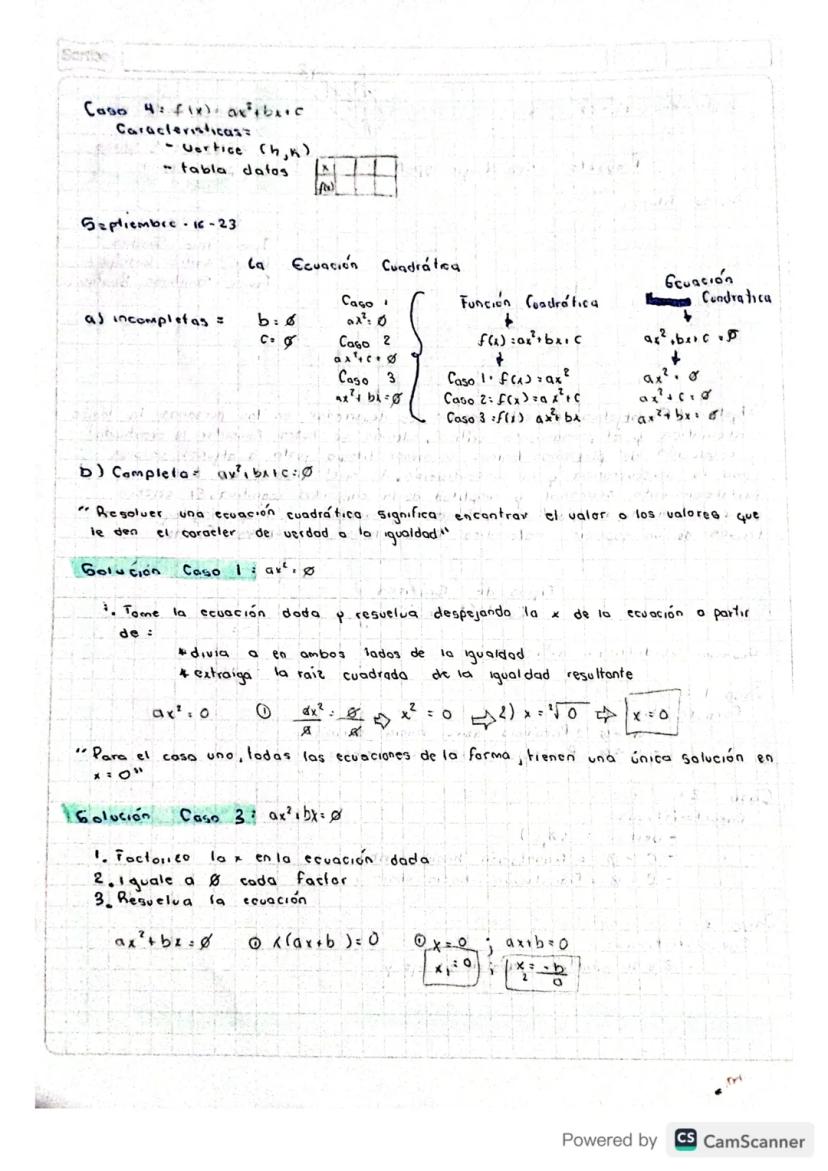 Scribe
Caso 4: f(x): ax²+bx+c
Caracteristicas:
- vertice (h,k)
- tabla datos
x
f(x)
Septiembre - 16 - 23
La Ecuación Cuadrática
a) incompletas =
b = ø
c = ø
Caso 1
ax² = ø
Caso 2
ax²+c = ø
Caso 3
ax²+bx = ø
Función Cuadrática
f(x) = ax²+bx+c
Caso 1: f(x) = ax²
Caso 2: f(x) = ax²+c
Caso 3: f(x) ax²+bx
Ecuación
Cuadratica
ax²+bx+c = ø
ax² = ø
ax²+c = ø
ax²+bx = ø
b) Completa = ax²+bx+c = ø
"Resolver una ecuación cuadrática significa encontrar el valor o los valores que
le den el caracter de verdad a la igualdad"
Solución Caso 1: ax² = ø
1. Tome la ecuación dada y resuelva despejando la x de la ecuación a partir
de:
* divia a en ambos lados de la igualdad
* extraiga la raiz cuadrada de la igualdad resultante
ax² = 0 ① ax²/a = ø/a ⇨ x² = 0 ⇨ 2) x = ²√0 ⇨ x = 0
"Para el caso uno, todas las ecuaciones de la forma, tienen una única solución en
x = 0"
Solución Caso 3: ax²+bx = ø
1. Factorice la x en la ecuación dada
2. Iguale a ø cada factor
3. Resuelva la ecuación
ax²+bx = ø ① x(ax+b) = 0 ① x = 0 ; ax+b = 0
x₁ = 0 ; x₂ = -b/0
Powered by CS CamScanner